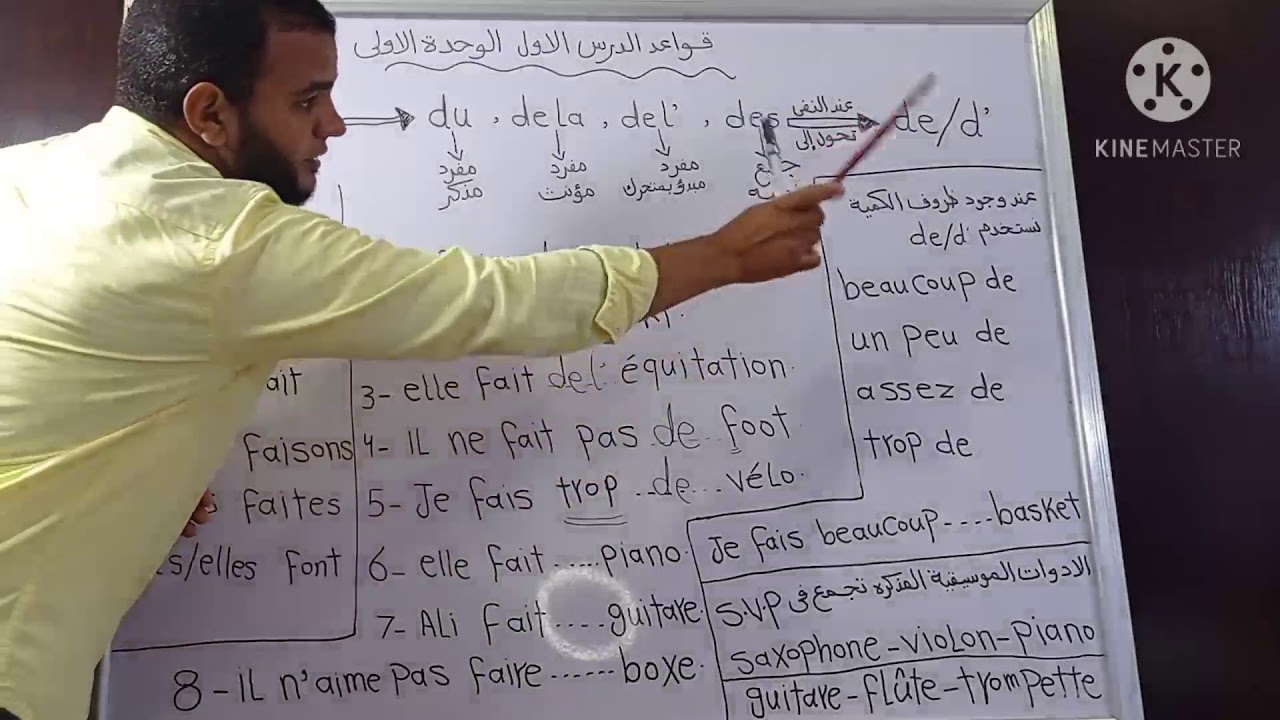 قواعد الدرس الاول الوحدة الاولى
du , dela , del' , des عند النفى تحول إلى de/d'
مفرد مذكر
مفرد مؤنث
مفرد مبدؤ بمتحرك
جمع
عند وجود ظروف الكمية
نستخدم de/d'
beaucoup de
un peu de
assez de
trop de
Je fais beaucoup ----basket
الادوات الموسيقية المذكره تجمع فى S.V.P
saxophone-violon-piano
guitare-flûte-trompette
ait
faisons
faites
s/elles font
3- elle fait del' équitation.
4- iL ne fait pas de foot
5- Je fais trop ..de... vélo.
6- elle fait ..... piano.
7- ALi fait ....guitare.
8- iL n'aime pas faire ...... boxe.
K
KINEMASTER